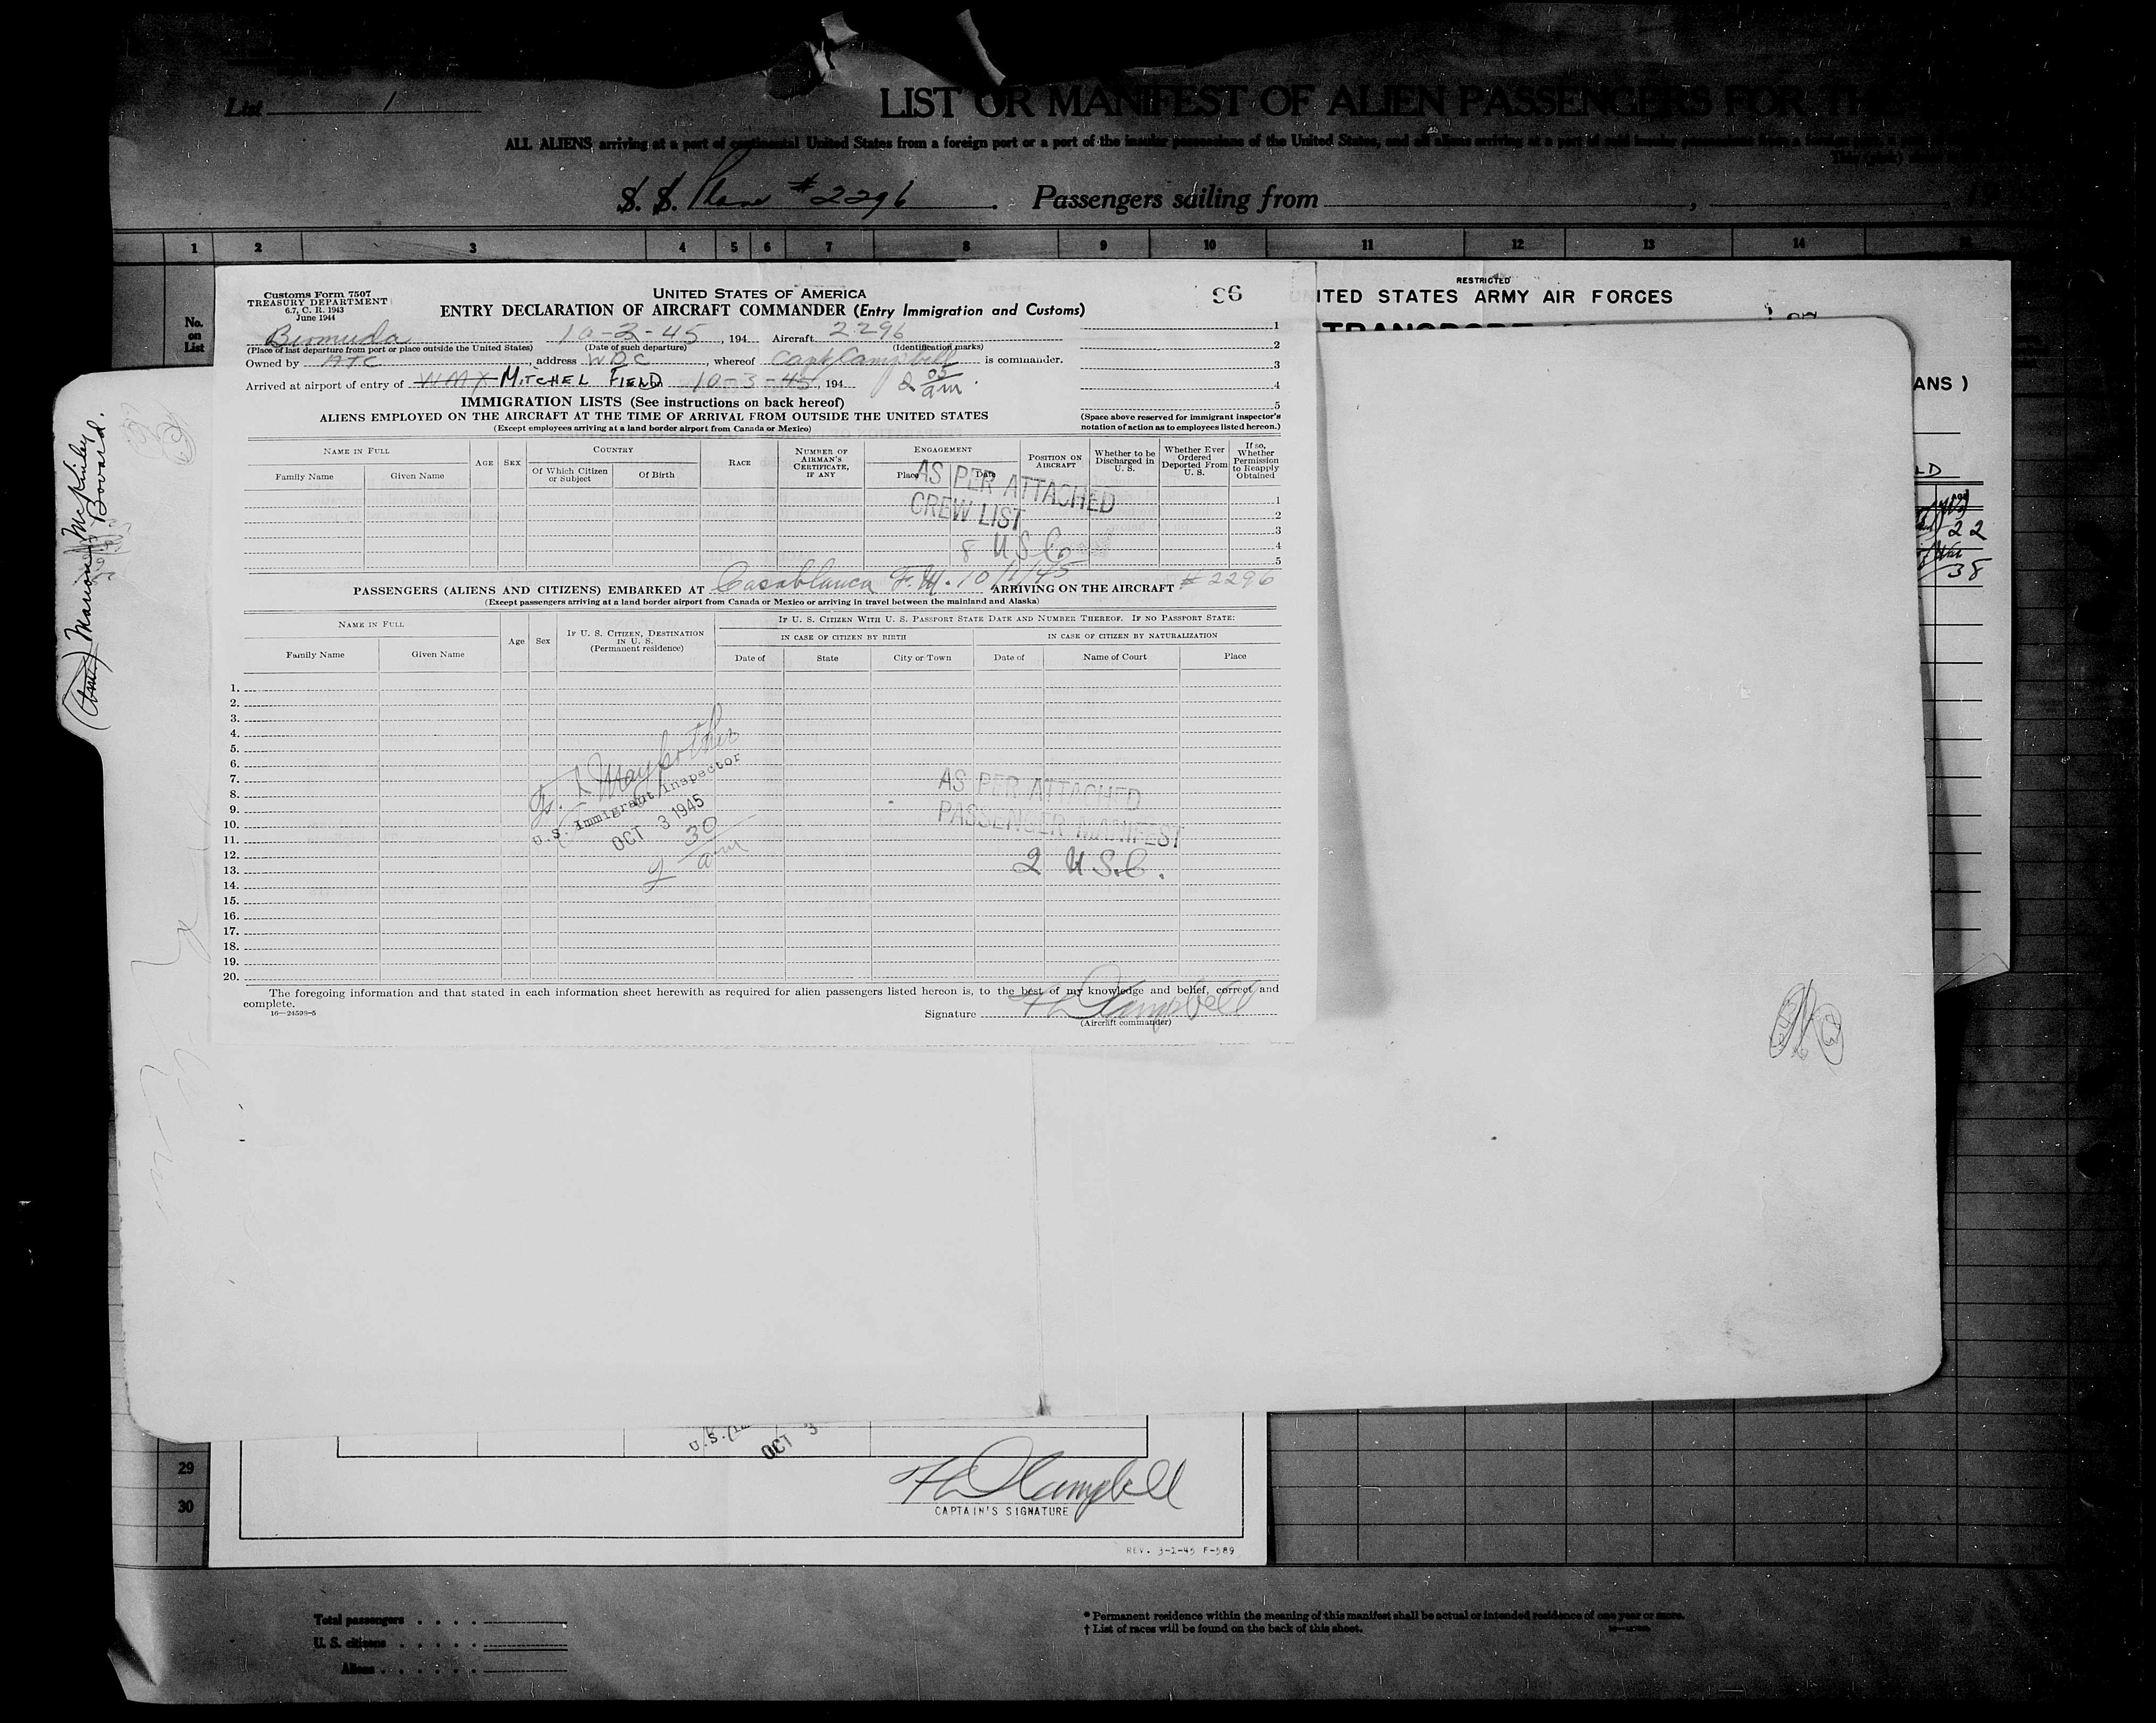 List 1
LIST OR MANIFEST OF ALIEN PASSENGERS FOR TH
ALL ALIENS arriving at a port of continental United States from a foreign port or a port of the insular possessions of the United States, and all aliens arriving at a port of said insular possessions from a foreign
S. S. Plane #2296 . Passengers sailing from , , 19
1 2 3 4 5 6 7 8 9 10 11 12 13 14 15
No.
on
List
Customs Form 7507
TREASURY DEPARTMENT
6.7, C. R. 1943
June 1944
UNITED STATES OF AMERICA
96
ENTRY DECLARATION OF AIRCRAFT COMMANDER (Entry Immigration and Customs)
Bermuda 10-3-45, 194 Aircraft 2296
(Place of last departure from port or place outside the United States) (Date of such departure) (Identification marks)
Owned by ATC, address WDC, whereof Capt Campbell is commander.
Arrived at airport of entry of MITCHEL FIELD 10-3-45, 194 2 05 am.
1
2
3
4
5
(Space above reserved for immigrant inspector's
notation of action as to employees listed hereon.)
IMMIGRATION LISTS (See instructions on back hereof)
ALIENS EMPLOYED ON THE AIRCRAFT AT THE TIME OF ARRIVAL FROM OUTSIDE THE UNITED STATES
(Except employees arriving at a land border airport from Canada or Mexico)
NAME IN FULL
Family Name Given Name
AGE SEX
COUNTRY
Of Which Citizen or Subject Of Birth
RACE
NUMBER OF AIRMAN'S CERTIFICATE, IF ANY
ENGAGEMENT
Place Date
POSITION ON AIRCRAFT
Whether to be Discharged in U. S.
Whether Ever Ordered Deported From U. S.
If so, Whether Permission to Reapply Obtained
AS PER ATTACHED
CREW LIST
8 U S C
1
2
3
4
5
PASSENGERS (ALIENS AND CITIZENS) EMBARKED AT Casablanca F.M. 10/1/45 ARRIVING ON THE AIRCRAFT #2296
(Except passengers arriving at a land border airport from Canada or Mexico or arriving in travel between the mainland and Alaska)
NAME IN FULL
Family Name Given Name
Age Sex
IF U. S. CITIZEN, DESTINATION IN U. S.
(Permanent residence)
IF U. S. CITIZEN WITH U. S. PASSPORT STATE DATE AND NUMBER THEREOF. IF NO PASSPORT STATE:
IN CASE OF CITIZEN BY BIRTH IN CASE OF CITIZEN BY NATURALIZATION
Date of State City or Town Date of Name of Court Place
1.
2.
3.
4.
5.
6.
7.
8.
9.
10.
11.
12.
13.
14.
15.
16.
17.
18.
19.
20.
U. S. Immigrant Inspector
OCT 3 1945
9 30 am
AS PER ATTACHED
PASSENGER MANIFEST
2 U.S.C.
The foregoing information and that stated in each information sheet herewith as required for alien passengers listed hereon is, to the best of my knowledge and belief, correct and
complete.
16—24598-5
Signature H D Campbell
(Aircraft commander)
RESTRICTED
ITED STATES ARMY AIR FORCES
TRANSPORT
ANS )
LD
22
38
Marion McKinley
Bovard.
29
30
U.S.
OCT 3
H D Campbell
CAPTAIN'S SIGNATURE
REV. 3-1-45 F-589
Total passengers
U. S. citizens
Aliens
* Permanent residence within the meaning of this manifest shall be actual or intended residence of one year or more.
† List of races will be found on the back of this sheet.